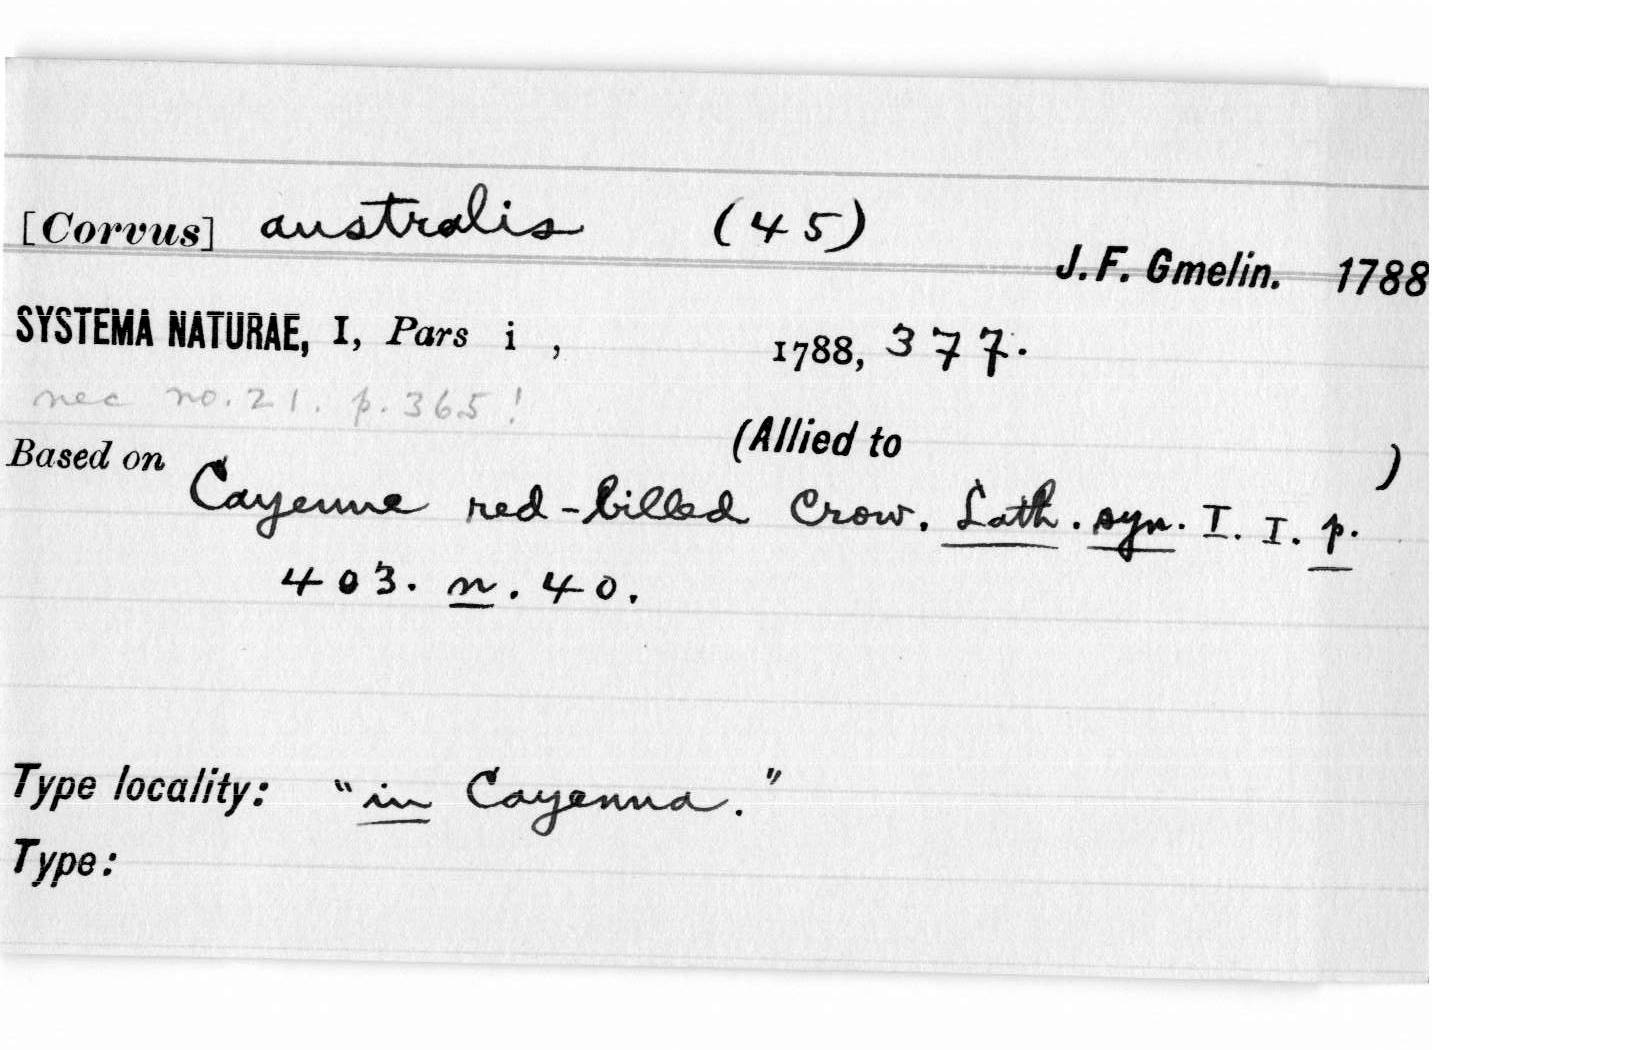 [Corvus] australis (45)
J. F. Gmelin. 1788
SYSTEMA NATURAE, I, Pars i , 1788, 377.
nec no. 21. p. 365!
(Allied to )
Based on Cayenne red-billed Crow. Lath. syn. I. I. p.
403. n. 40.
Type locality: "in Cayenna."
Type: